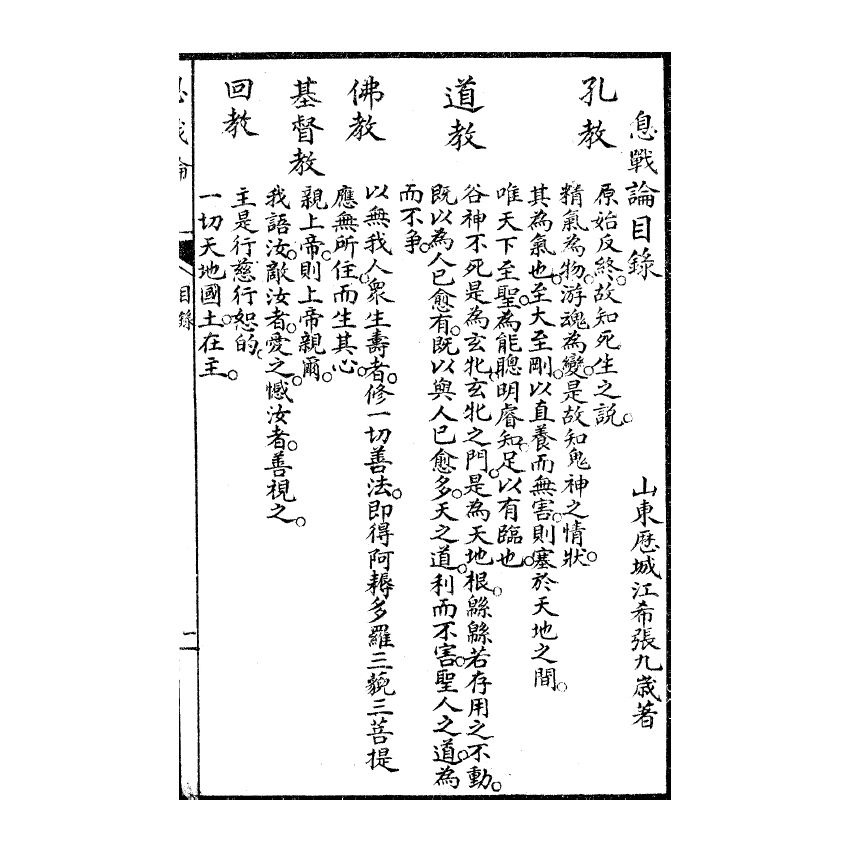 息戰論目錄 山東歷城江希張九歲著
孔教
原始反終。故知死生之説。
精氣為物。游魂為變。是故知鬼神之情狀。
其為氣也。至大至剛。以直養而無害。則塞於天地之間。
唯天下至聖。為能聰明睿知。足以有臨也。
道教
谷神不死。是為玄牝。玄牝之門。是為天地根。緜緜若存。用之不動。
既以為人已愈有。既以與人已愈多。天之道。利而不害。聖人之道。為
而不爭。
佛教
以無我人衆生壽者。修一切善法。即得阿耨多羅三藐三菩提
應無所住而生其心。
基督教
親上帝。則上帝親爾。
我語汝。敵汝者。愛之。憾汝者。善視之。
回教
主是行慈行恕的。
一切天地國土在主。
息戰論 目錄 二